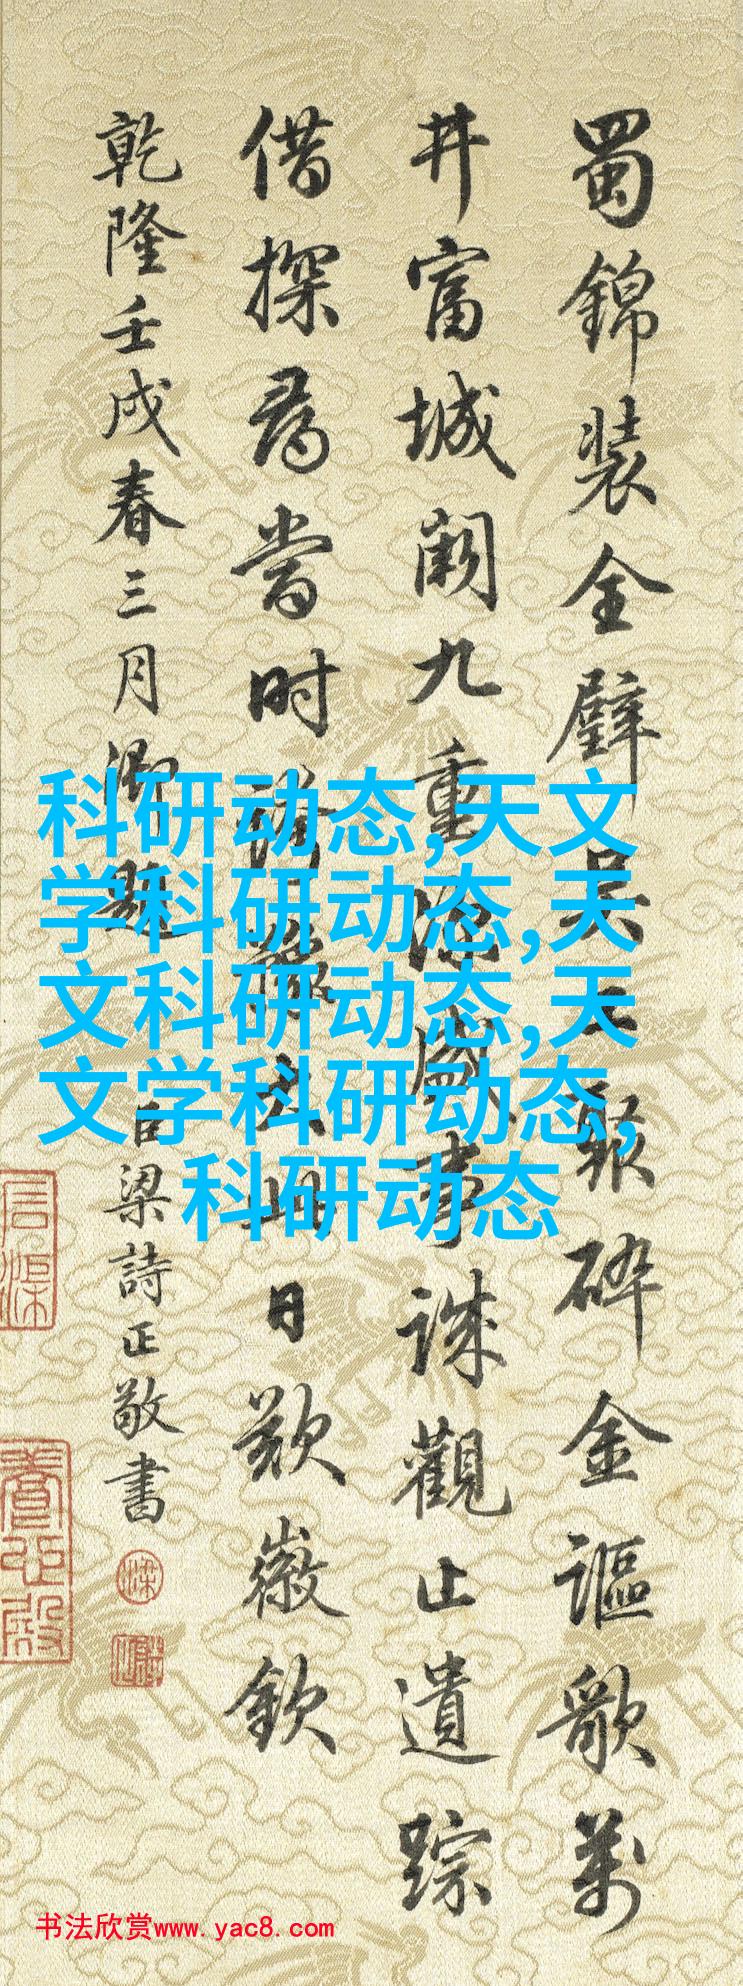 蜀錦装全璧吳工聚碎金謳歌萬
井富城闕九重深盛事誅觀止遺踪
借探尋當時誇豫大此日歎徽欽
乾隆壬戌春三月御題
臣梁詩正敬書
科研动态,天文
学科研动态,天
文科研动态,天
文学科研动态,
科研动态
书法欣赏www.yac8.com